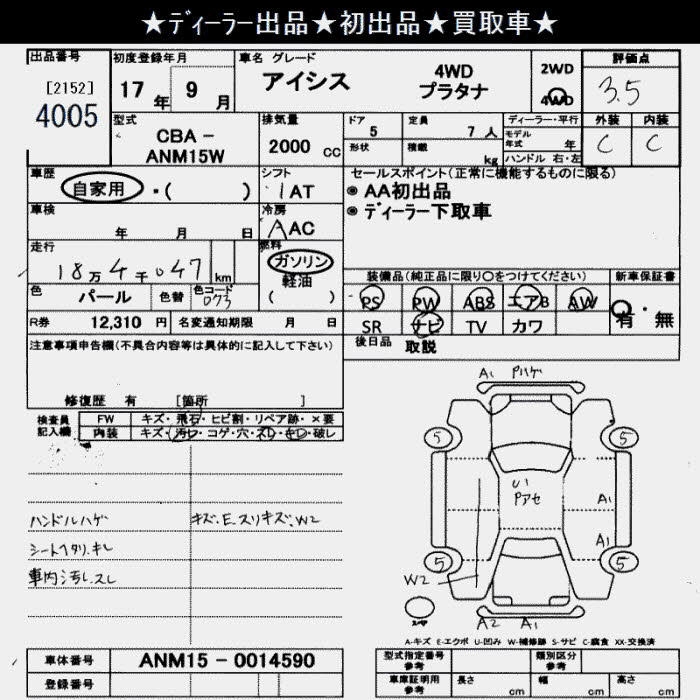 ★ディーラー出品★初出品★買取車★
出品番号 初度登録年月 車名 グレード 2WD 評価点
[2152] 17年 9月 アイシス 4WD プラタナ 4WD 3.5
4005 型式 排気量 ドア 定員 ディーラー・平行 外装 内装
CBA - ANM15W 2000 cc 5 7人 モデル年式 年 C C
形状 積載 kg ハンドル 右・左
車歴 シフト セールスポイント(正常に機能するものに限る)
自家用・( ) IAT ◉ AA初出品
車検 冷房 ◉ ディーラー下取車
年 月 日 AAC
走行 燃料
18万4千047km ガソリン 軽油 ( ) 装備品(純正品に限り〇をつけてください) 新車保証書
色 パール 色替 色コード 073 PS PW ABS エアB AW 有・無
R券 12,310 円 名変通知期限 月 日 SR ナビ TV カワ
注意事項申告欄(不具合内容等は具体的に記入して下さい) 後日品 取説
修復歴 有 [箇所 ]
検査員記入欄 FW キズ・飛石・ヒビ割・リペア跡・×要
内装 キズ・汚レ・コゲ・穴・スレ・キレ・破レ
ハンドルハゲ キズ.E.スリキズ.W2
シートヘタリ.キレ
車内汚レ.スレ
A1 アハゲ
5 5
U1 アセ
A1
A1
5 5
W2
A2 A1
A-キズ E-エクボ U-凹み W-補修跡 S-サビ C-腐食 XX-交換済
車体番号 ANM15 - 0014590 型式指定番号 参考 類別区分 参考
登録番号 車庫証明用 参考 長さ cm 幅 cm 高さ cm